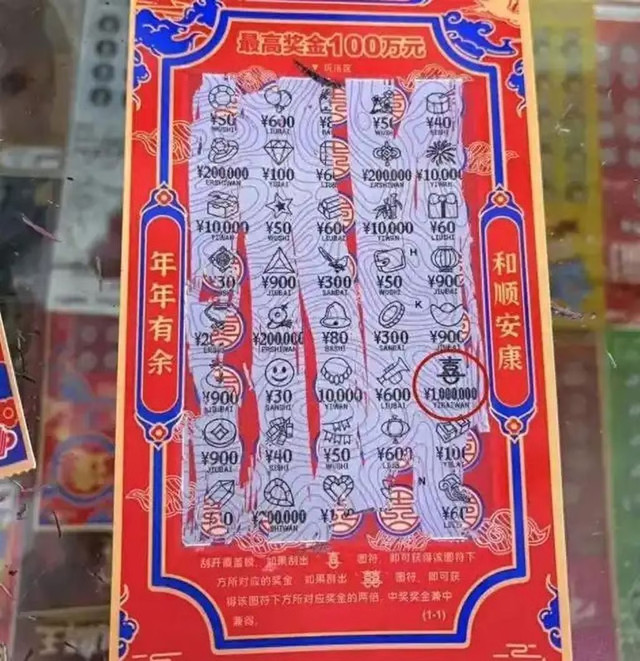 最高奖金100万元
玩法区
¥50 ¥600 ¥8 ¥50 ¥40
WUSHI LIUBAI BA WUSHI SISHI
¥200,000 ¥100 ¥6 ¥200,000 ¥10,000
ERSHIWAN YIBAI LIU ERSHIWAN YIWAN
¥10,000 ¥50 ¥600 ¥10,000 ¥60
YIWAN WUSHI LIUBAI YIWAN LIUSHI
H
¥30 ¥900 ¥300 ¥50 ¥900
SANSHI JIUBAI SANBAI WUSHI JIUBAI
K
¥200,000 ¥80 ¥300 ¥900
ERSHIWAN BASHI SANBAI
喜
¥900 ¥30 10,000 ¥600 ¥1,000,000
JIUBAI SANSHI YIWAN LIUBAI YIBAIWAN
¥900 ¥40 ¥50 ¥600 ¥100
JIUBAI SISHI WUSHI LIUB YIBAI
N
¥200,000 ¥60
SHIWAN
年年有余
和顺安康
刮开覆盖膜，如果刮出 喜 图符，即可获得该图符下
方所对应的奖金；如果刮出 囍 图符，即可获
得该图符下方所对应奖金的两倍。中奖奖金兼中
兼得。
(1-1)